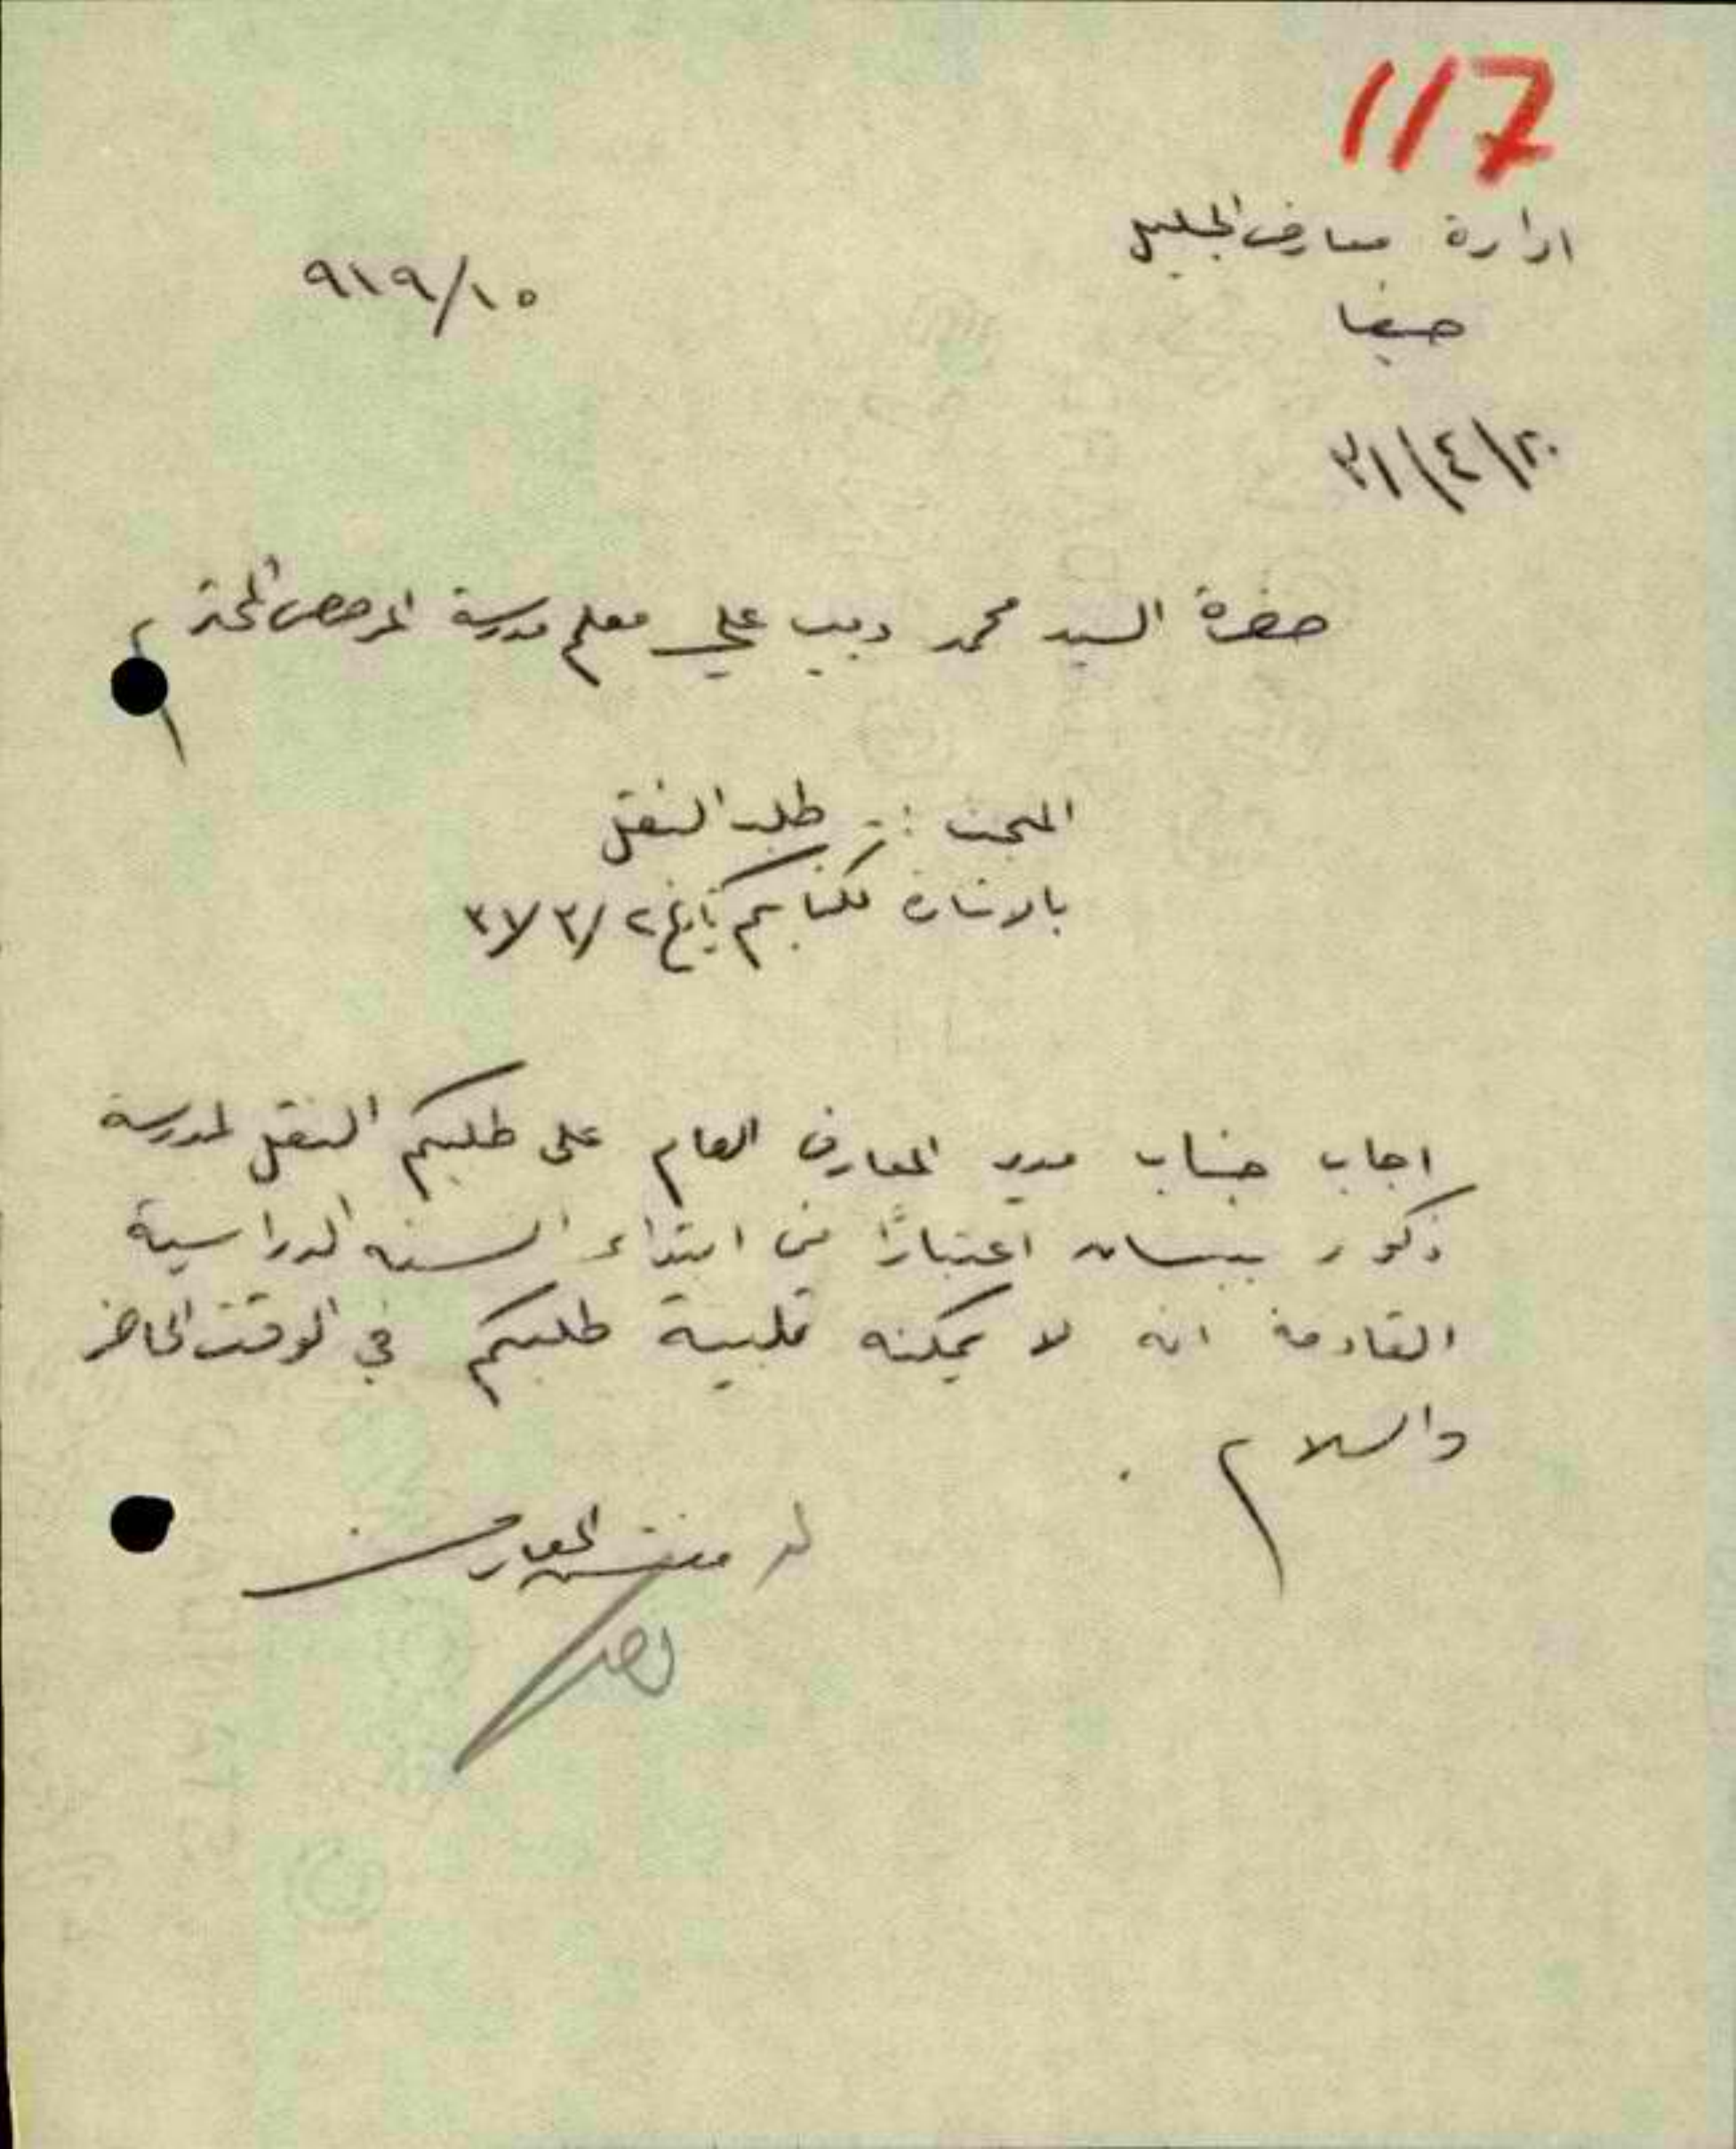 117
ادارة معارف الجليل
٩١٩/١٥
حيفا
٢٠/٤/٣١
حضرة السيد محمد ديب علي معلم مدرسة المحترم
المبحث :- طلب النقل
بالاشارة لكتابكم تاريخ ٢/٣/٣١
اجاب جناب مدير المعارف العام على طلبكم النقل لمدرسة
ذكور بيسان اعتبارًا من ابتداء السنه الدراسية
القادمة انه لا يمكنه تلبية طلبكم في الوقت الحاضر
والسلام .
مفتش المعارف